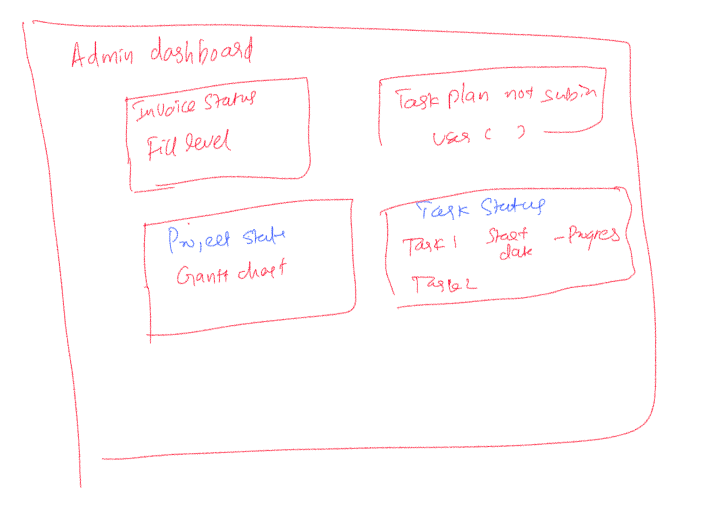 Admin dashboard
Invoice Status
Fill level
Task plan not subin
User ( )
Project State
Gantt chart
Task Status
Task 1 Start date - Progres
Task 2